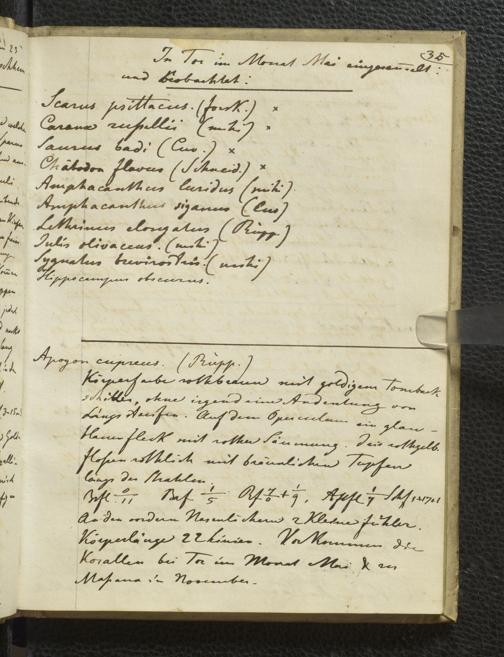 35
In Tor im Monat Mai eingesammelt:
und beobachtet:
Scarus psittacus. (forsk.) ×
Caranx ruppellii (mihi) ×
Saurus badi (Cuv.) ×
Chätodon flavus (Schneid.) ×
Amphacanthus luridus (mihi)
Amphacanthus siganus (Cuv)
Lethrinus elongatus (Rüpp.)
Julis olivaceus. (mihi)
Sygnatus brevirostris. (mihi)
Hippocampus obscurus.
Apogon cupreus. (Rüpp.)
Körperfarbe rothbraun mit goldigem Tomback-
schiller, ohne irgend eine Andeutung von
Längsstreifen. Auf dem Operculum ein
blauer fleck mit rother Säumung. Iris rothgelb.
flossen röthlich mit bräunlichen Tupfen
längs der Strahlen.
An den vordern Nasenlöchern 2 kleine fühler.
Körperlänge 22 Linien. Vorkommen die
Korallen bei Tor im Monat Mai & zu
Massaua in November.